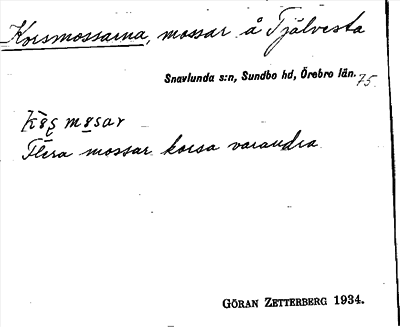 Korsmossarna, mossar å Tjälvesta
Snavlunda s:n, Sundbo hd, Örebro län. 75.
Flera mossar korsa varandra
GÖRAN ZETTERBERG 1934.